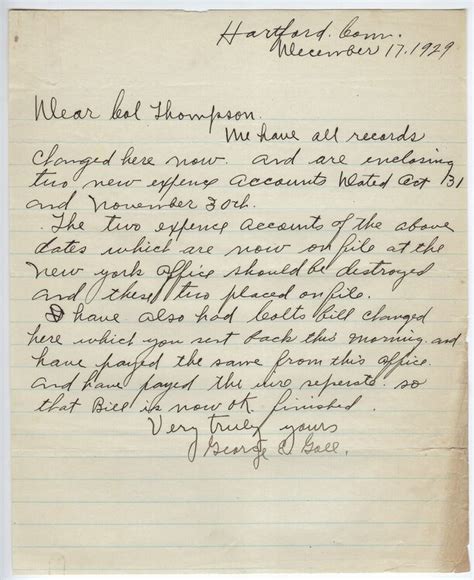 Hartford. Conn.
December 17. 1929
Dear Col Thompson.
We have all records
changed here now. and are enclosing
two new expence accounts Dated Oct 31
and November 30th.
The two expence accounts of the above
dates which are now on file at the
New york office should be destroyed
and these two placed on file.
I have also had Colts bill changed
here which you sent back this morning. and
have payed the same from this office.
and have payed the wire seperate. so
that Bill is now ok. finished.
Very truly yours
George E Goll.